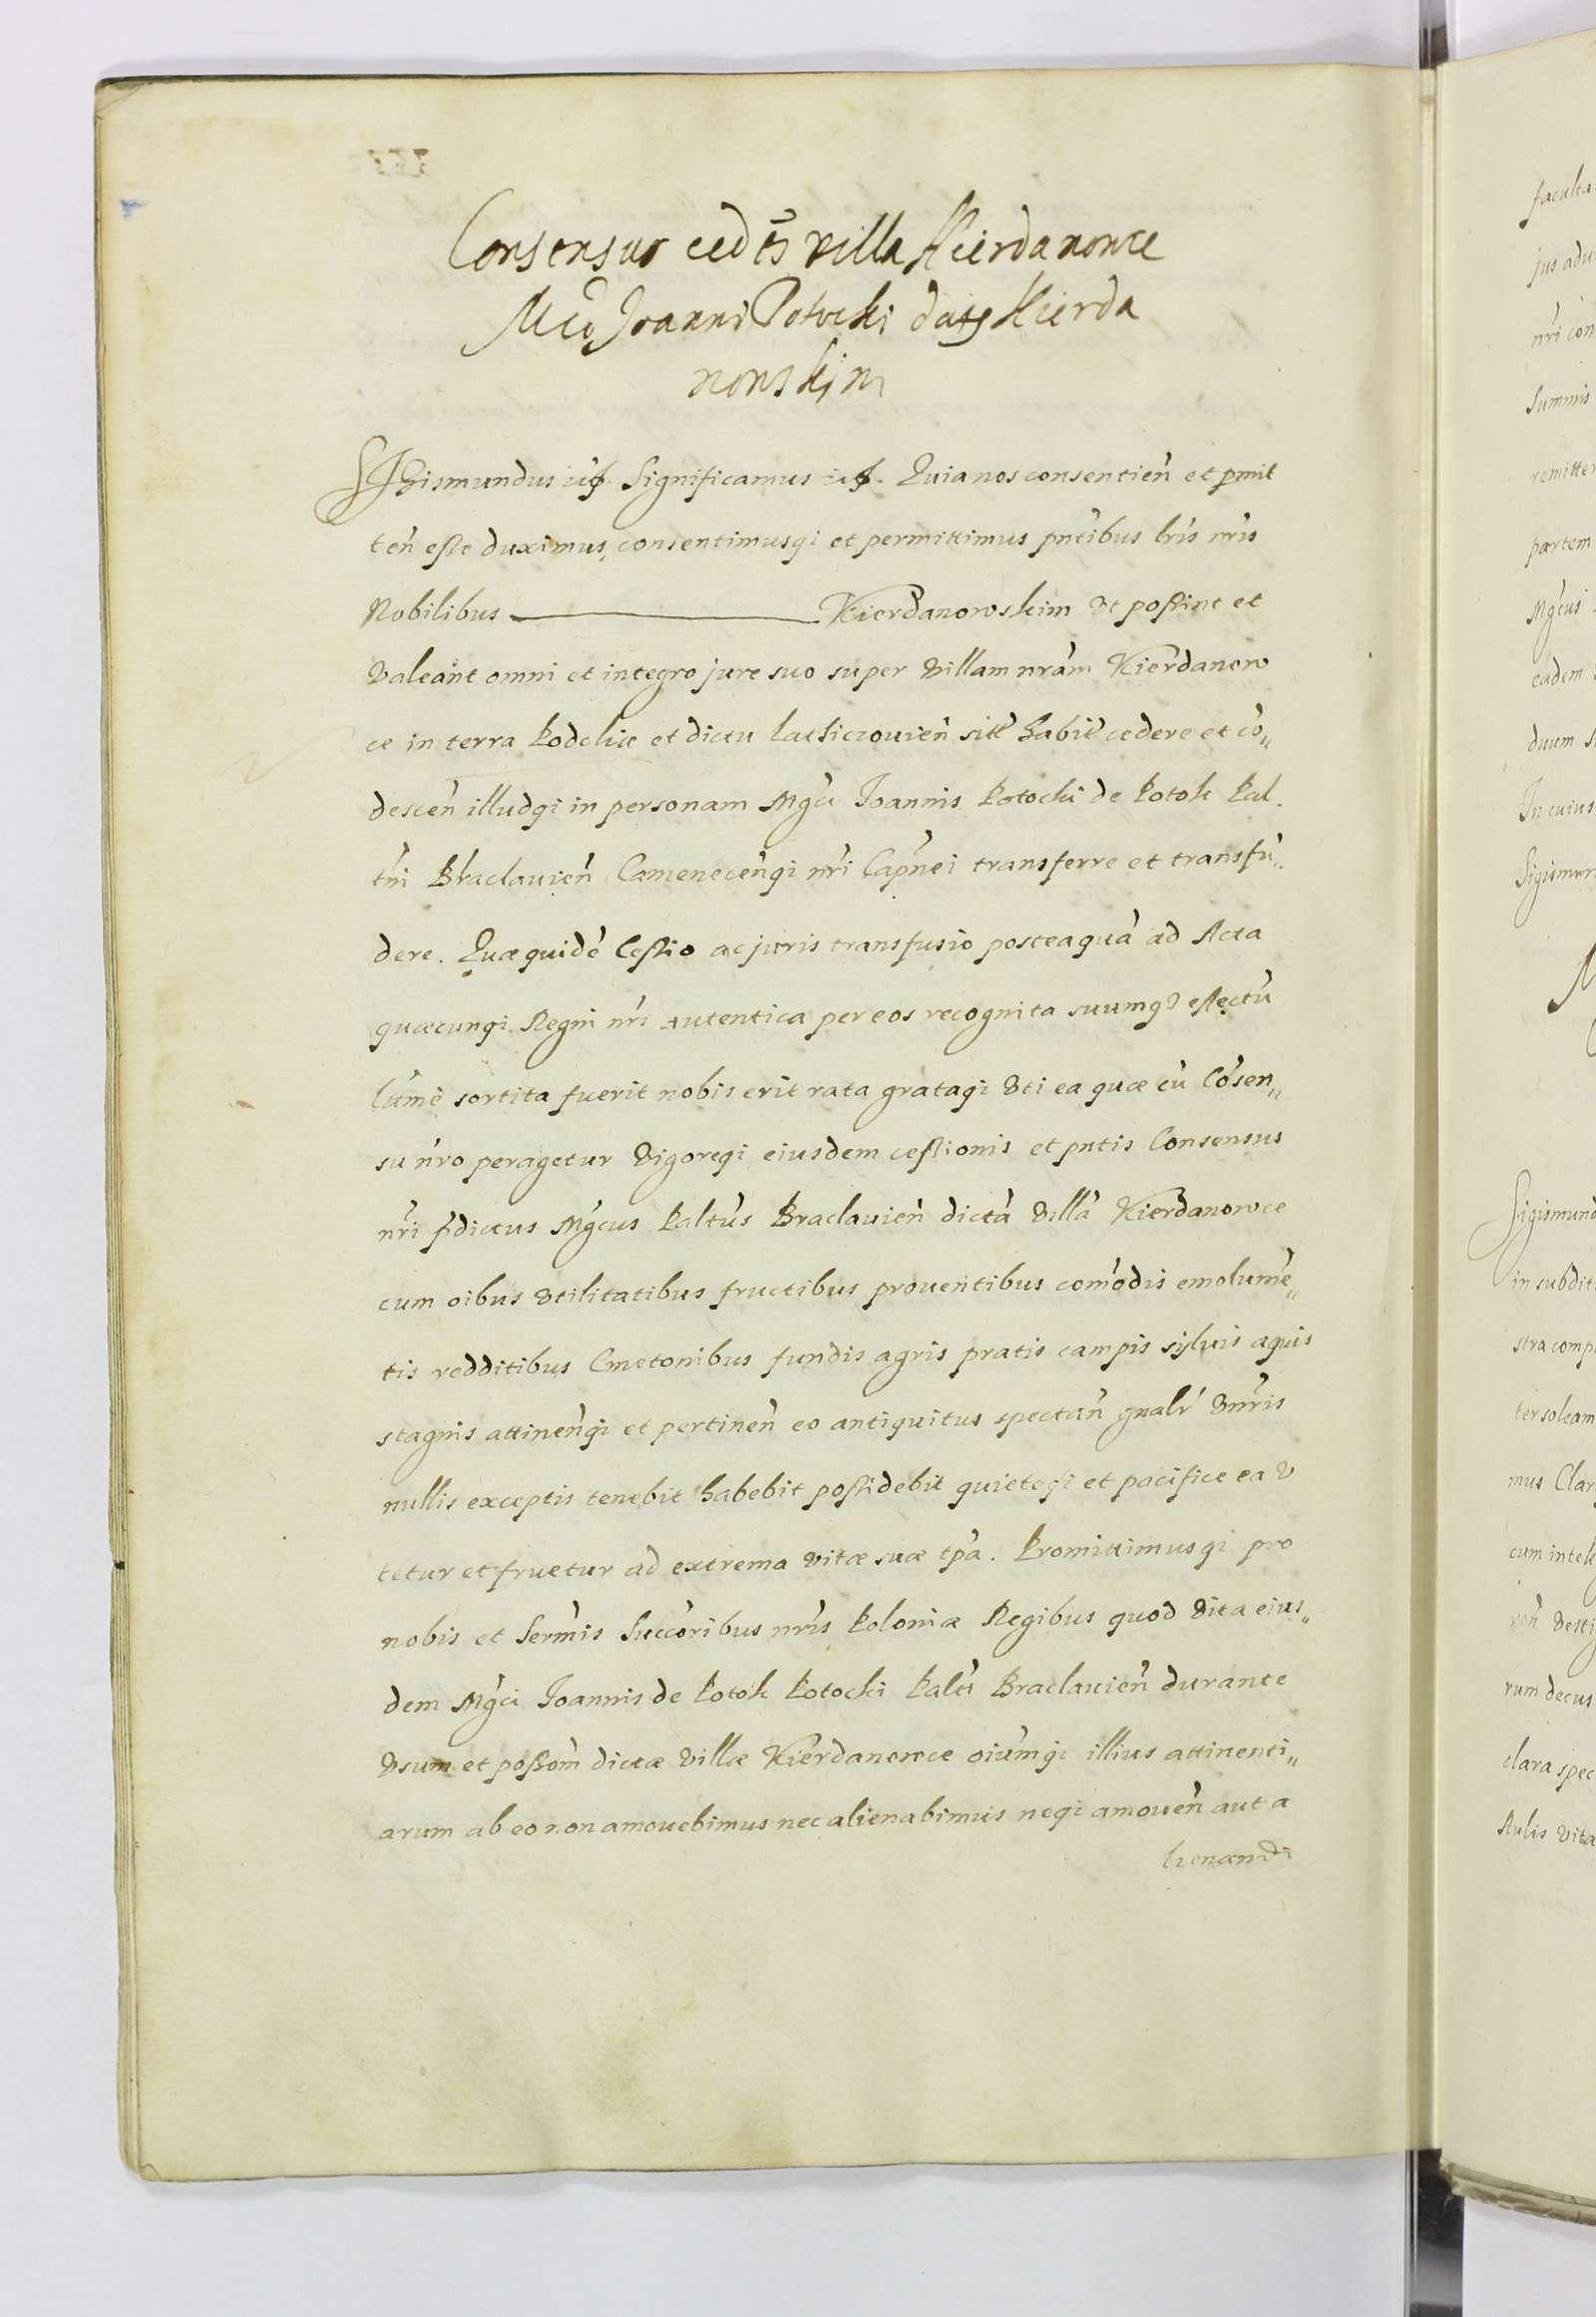 Consensus ced͂s villa Kierdanowce
Mco Joanni Potocki datg Kierda
nowskim
Sigismundus ut. Significamus ut. Quia nos consentień et pmit
teń esse duximus, consentimusqi et permittimus pntibus lris nris
Nobilibus ——— Kierdanowskim vt possint et
valeant omni et integro jure suo super villam nrám Kierdanow
ce in terra Podoliæ et dictu Laticzouień sit̕ habit̕ cedere et có„
desceń illudqi in personam Mgci Joannis Potocki de Potok Pal.
tni Braclauień Camenecénqi nri Capnei transferre et transfú„
dere. Quæ quidé Cessio ac juris transfusio posteaquá ad Acta
quæcunqi Regni nri autentica per eos recognita suumq effectú
ltimé sortita fuerit nobis erit rata grataqi vti ea quæ cú Cósen„
su nro peragetur vigoreqi eiusdem cessionis et pntis Consensus
nri pdictus Mgcus Paltús Braclauień dictá villá Kierdanowce
cum oibus vtilitatibus fructibus prouentibus comodis emolumé„
tis redditibus Cmetonibus fundis agris pratis campis syluis aquis
stagnis attinénqi et pertineń eo antiquitus spectań gnalr vnris
nullis exceptis tenebit habebit possidebit quieteqi et pacifice ea v
tetur et fruetur ad extrema vitæ suæ tpa. Promittimusqi pro
nobis et Sermis Succoribus nris Poloniæ Regibus quod vita eius„
dem Mgci Joannis de Potok Potocki Palti Braclauień durante
vsum et possom dictæ villæ Kierdanowce oiumqi illius attinenti„
arum ab eo non amouebimus nec alienabimus neqi amoueń aut a
lienandi
faculta
jus adu
nri con
Summis
remitter
partem
Mgcus
eadem
duum s
In cuius
Sigismun
Sigismund
in subdit
stra comp
ter soleam
mus Clar
cum intel
veń vesti
rum decus
clara spec
Aulis vita